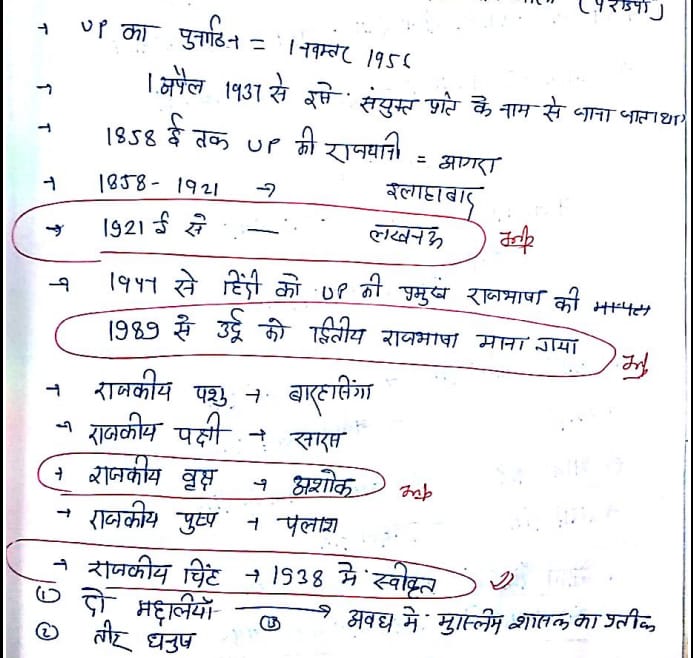 → UP का पुनर्गठन = 1 नवम्बर 1956
→ 1 अप्रैल 1937 से इसे संयुक्त प्रांत के नाम से जाना जाता था
→ 1858 ई तक UP की राजधानी = आगरा
→ 1858 - 1921 → इलाहाबाद
→ 1921 ई से — लखनऊ
→ 1947 से हिंदी को UP की प्रमुख राजभाषा की मान्यता
1989 से उर्दू को द्वितीय राजभाषा माना गया
→ राजकीय पशु → बारहसिंगा
→ राजकीय पक्षी → सारस
→ राजकीय वृक्ष → अशोक
→ राजकीय पुष्प → पलाश
→ राजकीय चिंह → 1938 में स्वीकृत
① दो मछलियाँ → अवध में मुस्लिम शासक का प्रतीक
② तीर धनुष